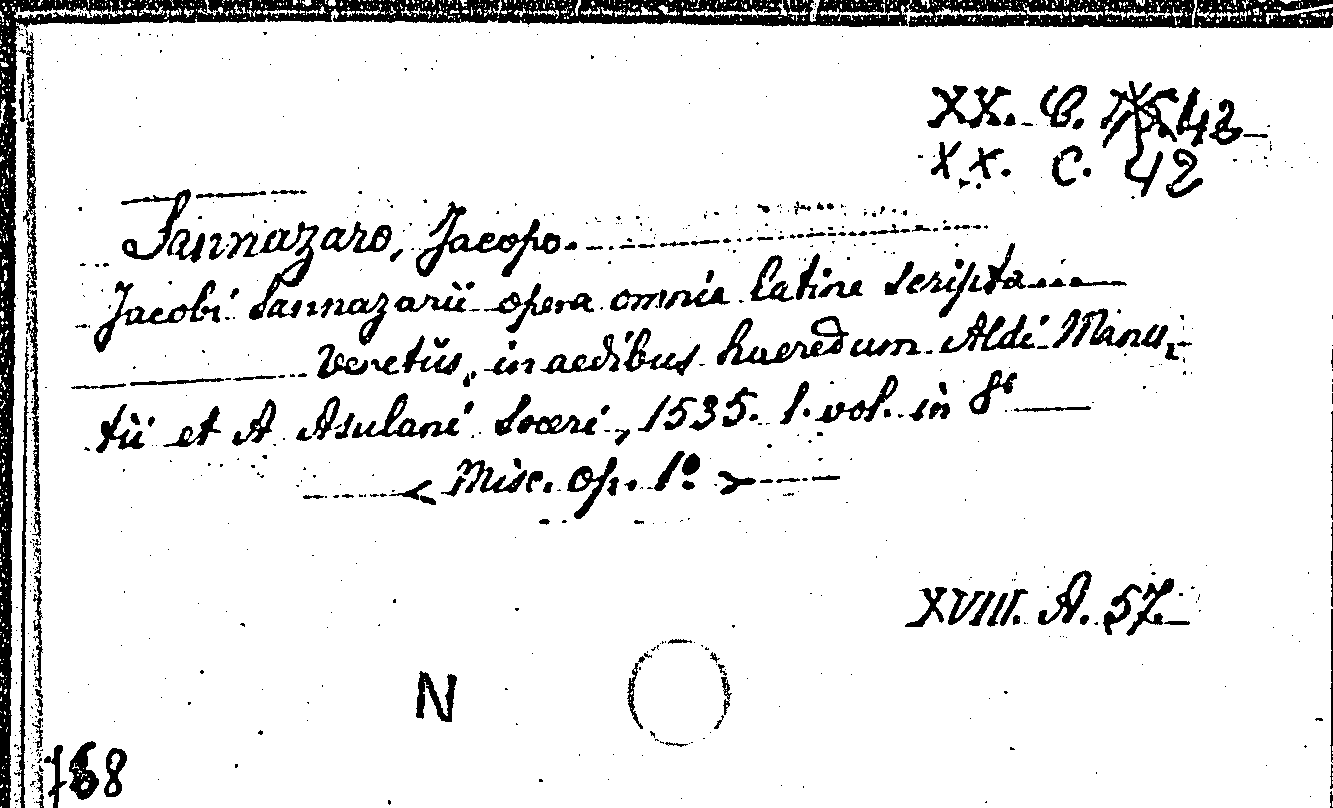 XX. C. 42
XX. C. 42
Sannazaro, Jacopo.
Jacobi Sannazarii opera omnia latine scripta
Venetiis, in aedibus haeredum Aldi Manu,
tii et A Asulani Soceri, 1535. 1. vol. in 8º
< Misc. op. 1º >
XVIII. A. 57.
N